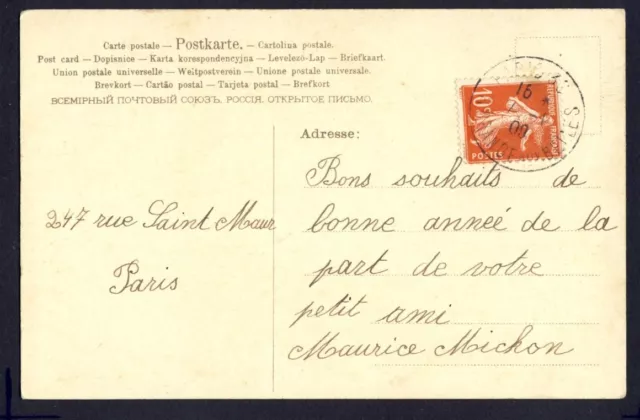 Carte postale — Postkarte. — Cartolina postale.
Post card — Dopisnice — Karta korespondencyjna — Levelező-Lap — Briefkaart.
Union postale universelle — Weltpostverein — Unione postale universale.
Brevkort — Cartão postal — Tarjeta postal — Brefkort
ВСЕМІРНЫЙ ПОЧТОВЫЙ СОЮЗЪ. РОССІЯ. ОТКРЫТОЕ ПИСЬМО.
10c
POSTES
Adresse:
Bons souhaits de
bonne anneé de la
part de votre
petit ami
Maurice Michon
247 rue Saint Maur
Paris